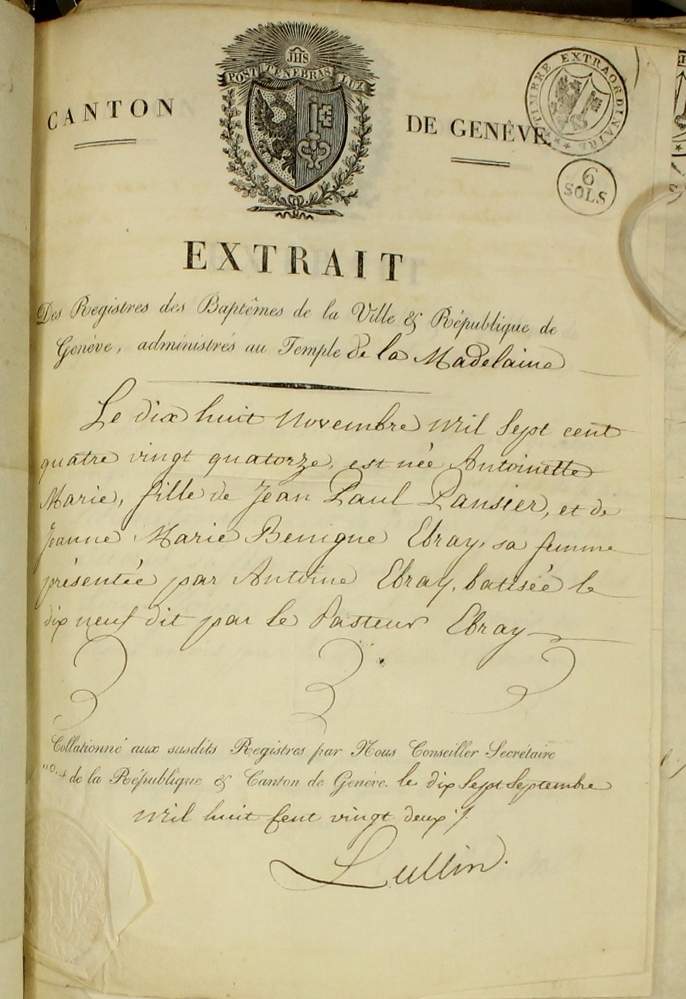 JHS
POST TENEBRAS LUX
CANTON DE GENÈVE
TIMBRE EXTRAORDINAIRE
6
SOLS
EXTRAIT
Des Registres des Baptêmes de la Ville & République de
Genève, administrés au Temple de la Madelaine
Le dix huit Novembre Mil Sept cent
quatre vingt quatorze, est née Antoinette
Marie, fille de Jean Paul Pansier, et de
Jeanne Marie Benigne Ebray, sa femme
présentée par Antoine Ebray, batisée le
dix neuf dit par le Pasteur Ebray
Collationné aux susdits Registres par Nous Conseiller Secrétaire
de la République & Canton de Genève. le dix Sept Septembre
Mil huit Cent vingt deux ./.
Lullin.